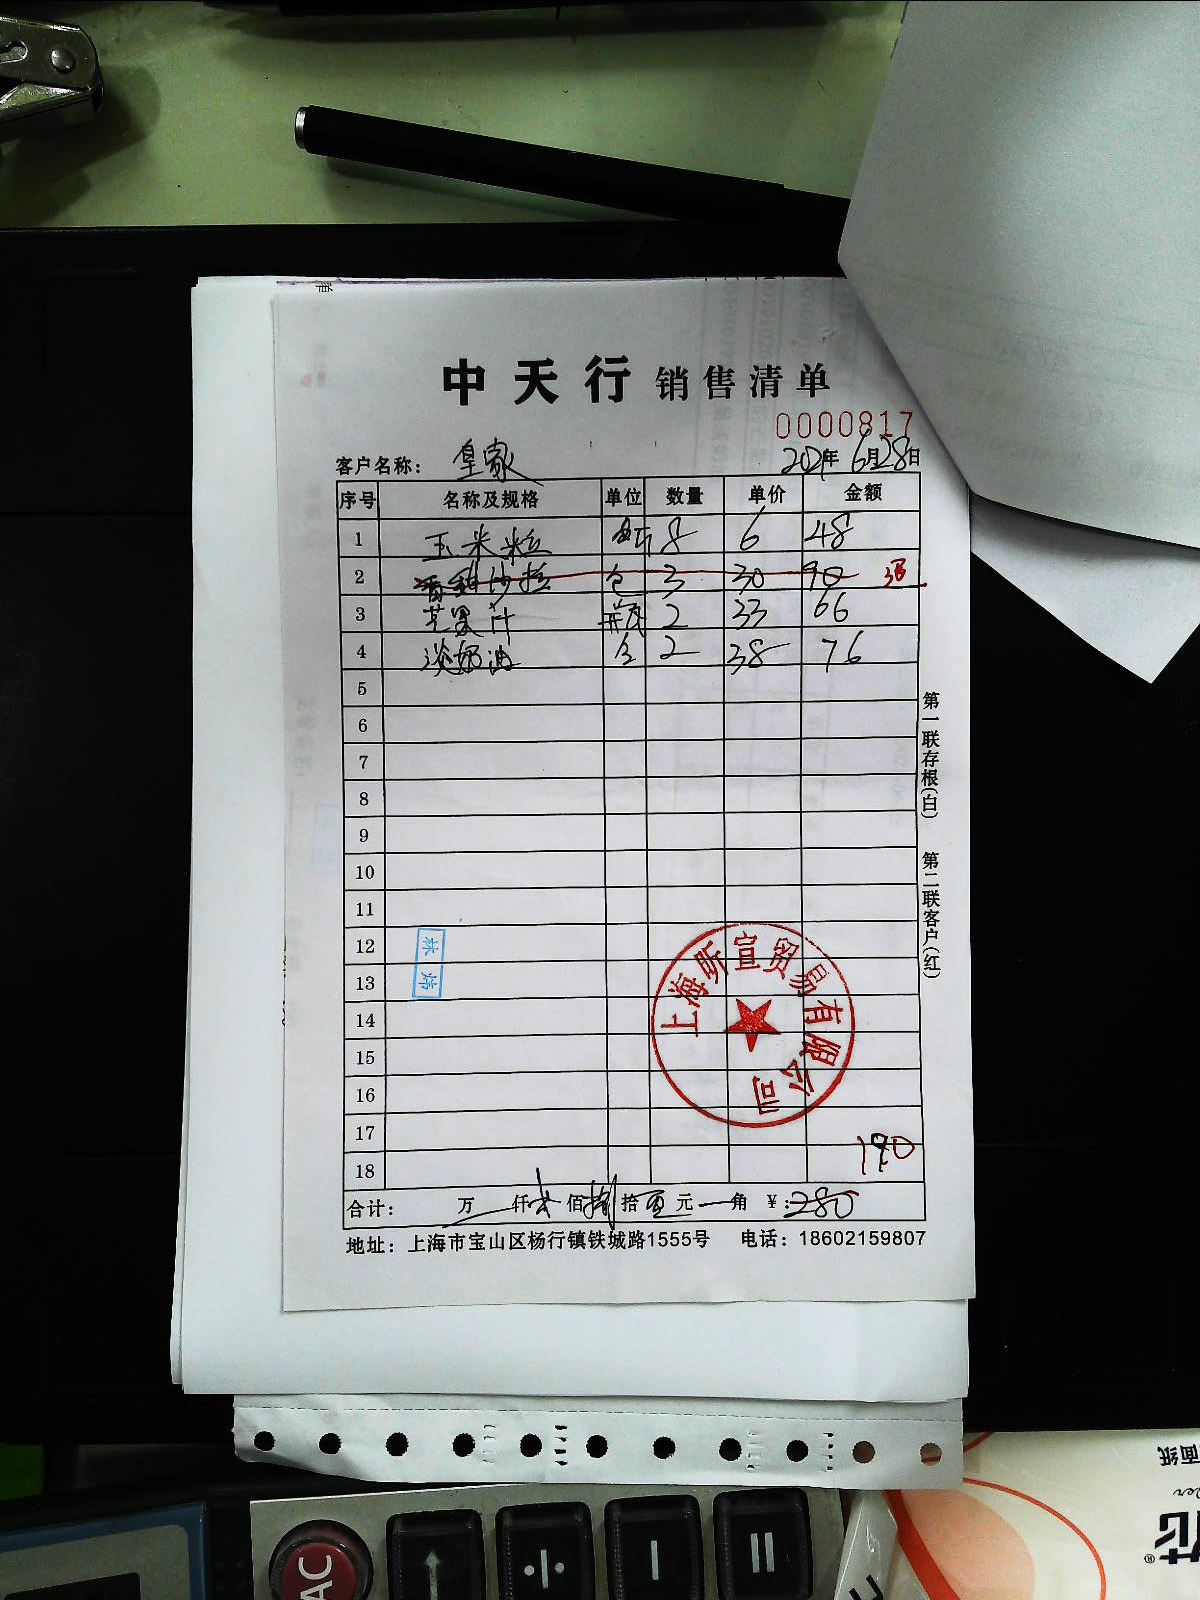 中天行 销售清单
0000817
客户名称： 皇家 2021年 6月28日
序号 名称及规格 单位 数量 单价 金额
1 玉米粒 8 6 48
2 香甜沙拉 包 3 30 90 退
3 芒果汁 瓶 2 33 66
4 淡奶油 2 38 76
5
6
7
8
9
10
11
12
13
14
15
16
17
18
190
合计： 万 仟 佰捌拾 元 角 ￥：280
地址：上海市宝山区杨行镇铁城路1555号 电话：18602159807
第一联存根(白) 第二联客户(红)
林炜
上海昕宣贸易有限公司
AC
÷
－
=
面纸